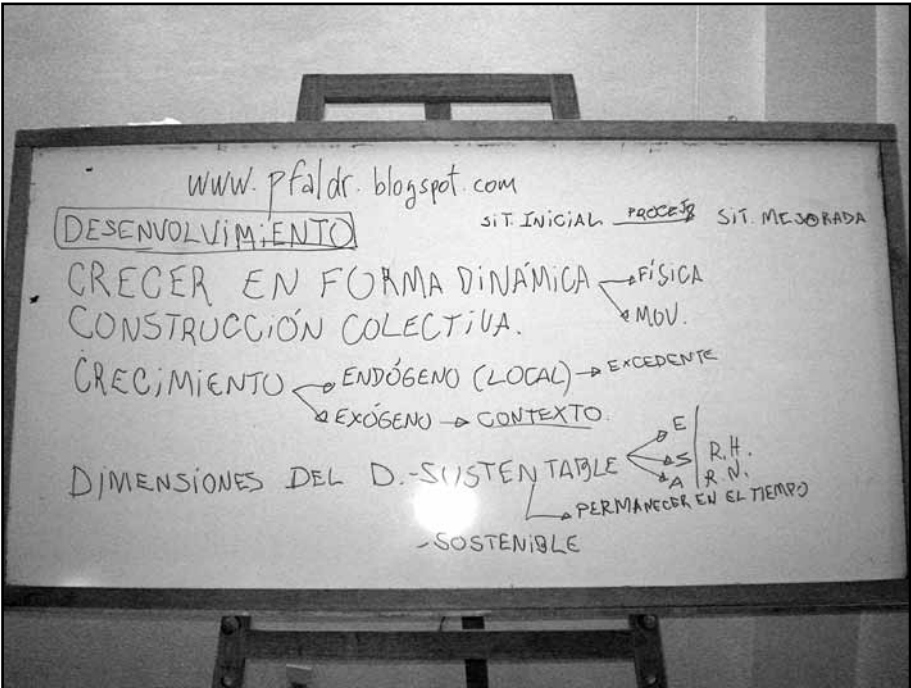 www.pfaldr.blogspot.com
DESENVOLVIMIENTO
SIT. INICIAL PROCESO SIT. MEJORADA
CRECER EN FORMA DINÁMICA → FÍSICA
→ MOV.
CONSTRUCCIÓN COLECTIVA.
CRECIMIENTO → ENDÓGENO (LOCAL) → EXCEDENTE
→ EXÓGENO → CONTEXTO.
DIMENSIONES DEL D.-SUSTENTABLE → E
→ S R.H.
→ A R.N.
→ PERMANECER EN EL TIEMPO
-SOSTENIBLE